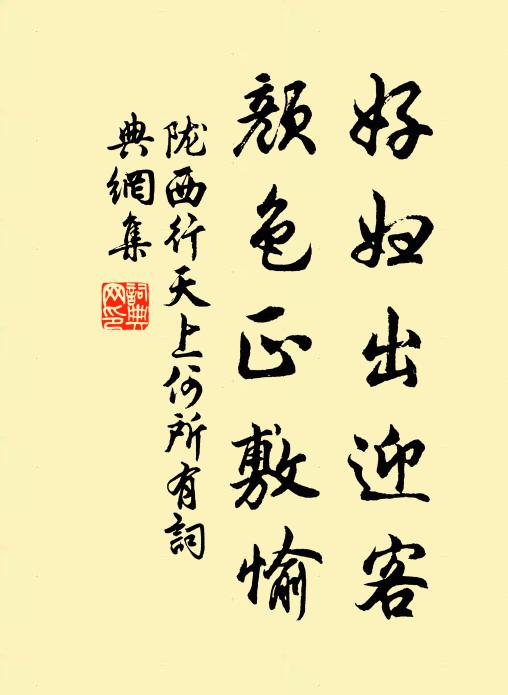 好妇出迎客
颜色正敷愉
陇西行天上何所有词
典網集
詞典網印